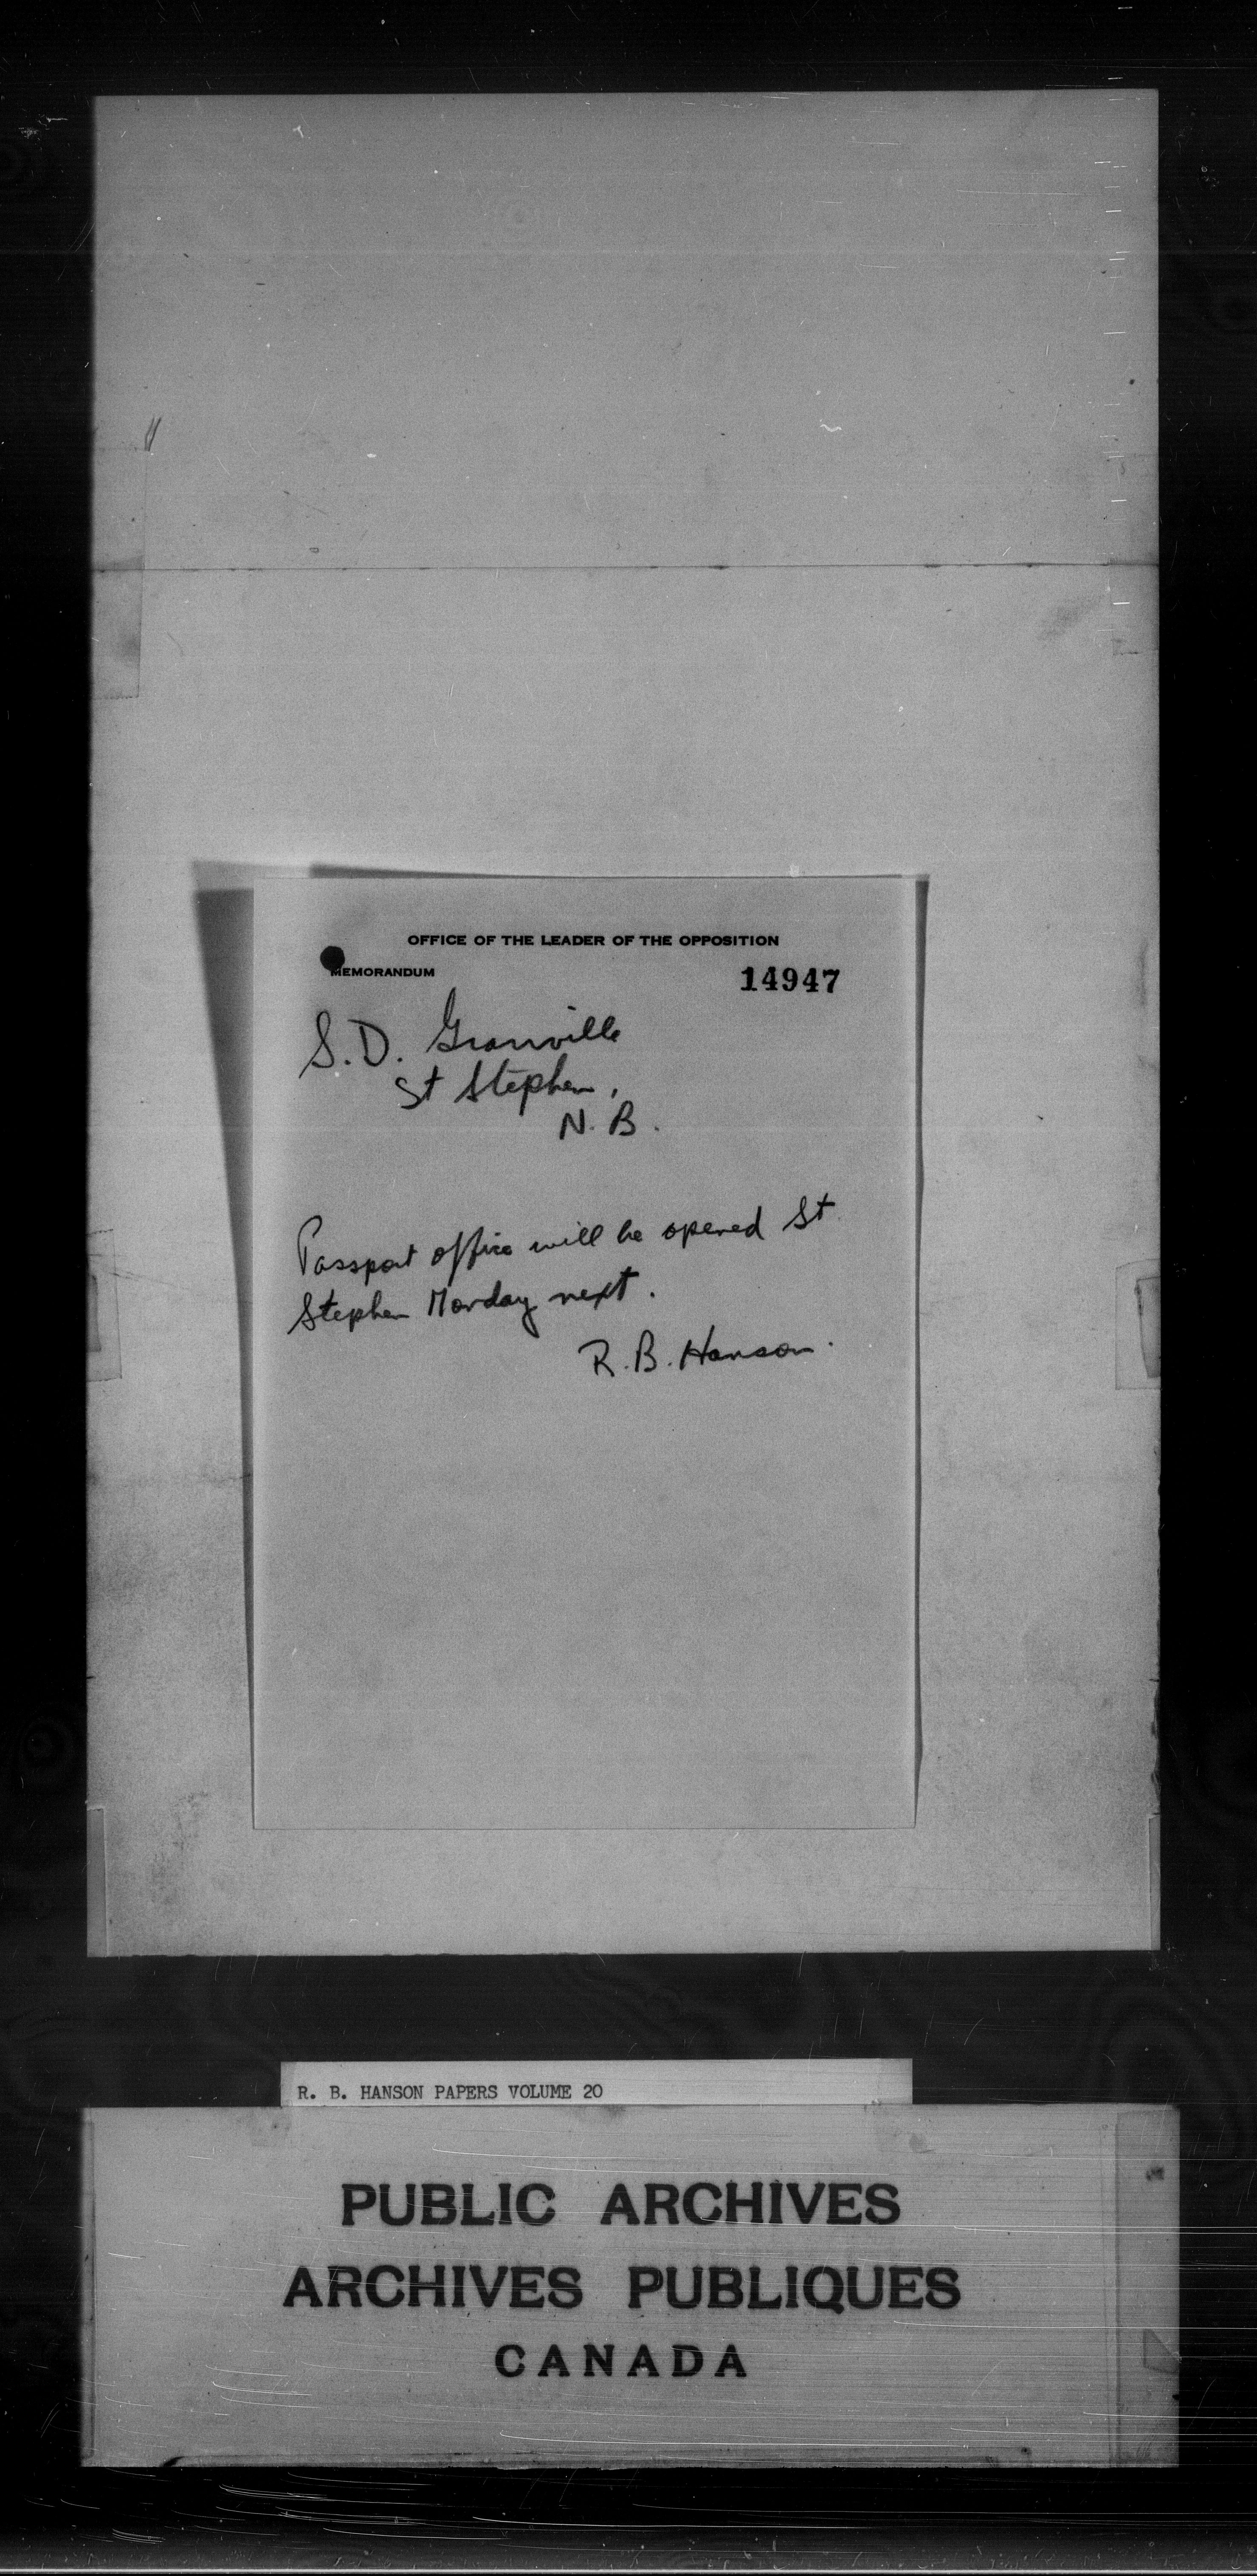 OFFICE OF THE LEADER OF THE OPPOSITION
MEMORANDUM
14947
S.D. Granville
St Stephen,
N.B.
Passport office will be opened St
Stephen Monday next.
R.B. Hanson.
R. B. HANSON PAPERS VOLUME 20
PUBLIC ARCHIVES
ARCHIVES PUBLIQUES
CANADA